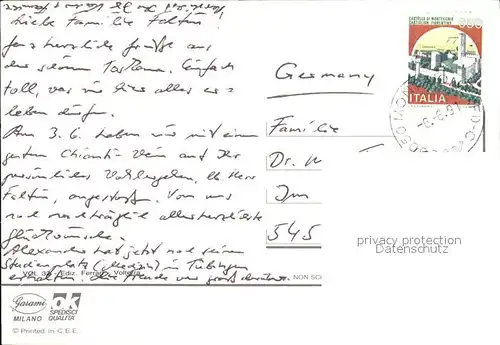 Liebe Familie Faltin!
ganz herzliche Grüße aus
der schönen Toskana. Einfach
toll, was wir hier alles er=
leben dürfen.
Am 3.6. haben wir mit einem
guten Chianti-Wein auf Ihr
persönliches Wohlergehen, lb Herr
Faltin, angestoßen. Von uns
noch nachträglich allerherzlichste
Glückwünsche.
Alexander hat jetzt noch seinen
Studienplatz (Medizin) in Tübingen
erhalten. Die Freude war groß
VOL 33 Ediz. Ferrari Volterra
Garami
MILANO
ok
SPEDISCI
QUALITA'
© Printed in C.E.E.
CASTELLO DI MONTECCHIO
CASTIGLION FIORENTINO
ITALIA
-6.-6.91
Germany
Familie
Dr.
Im
545
privacy protection
Datenschutz
NON SC